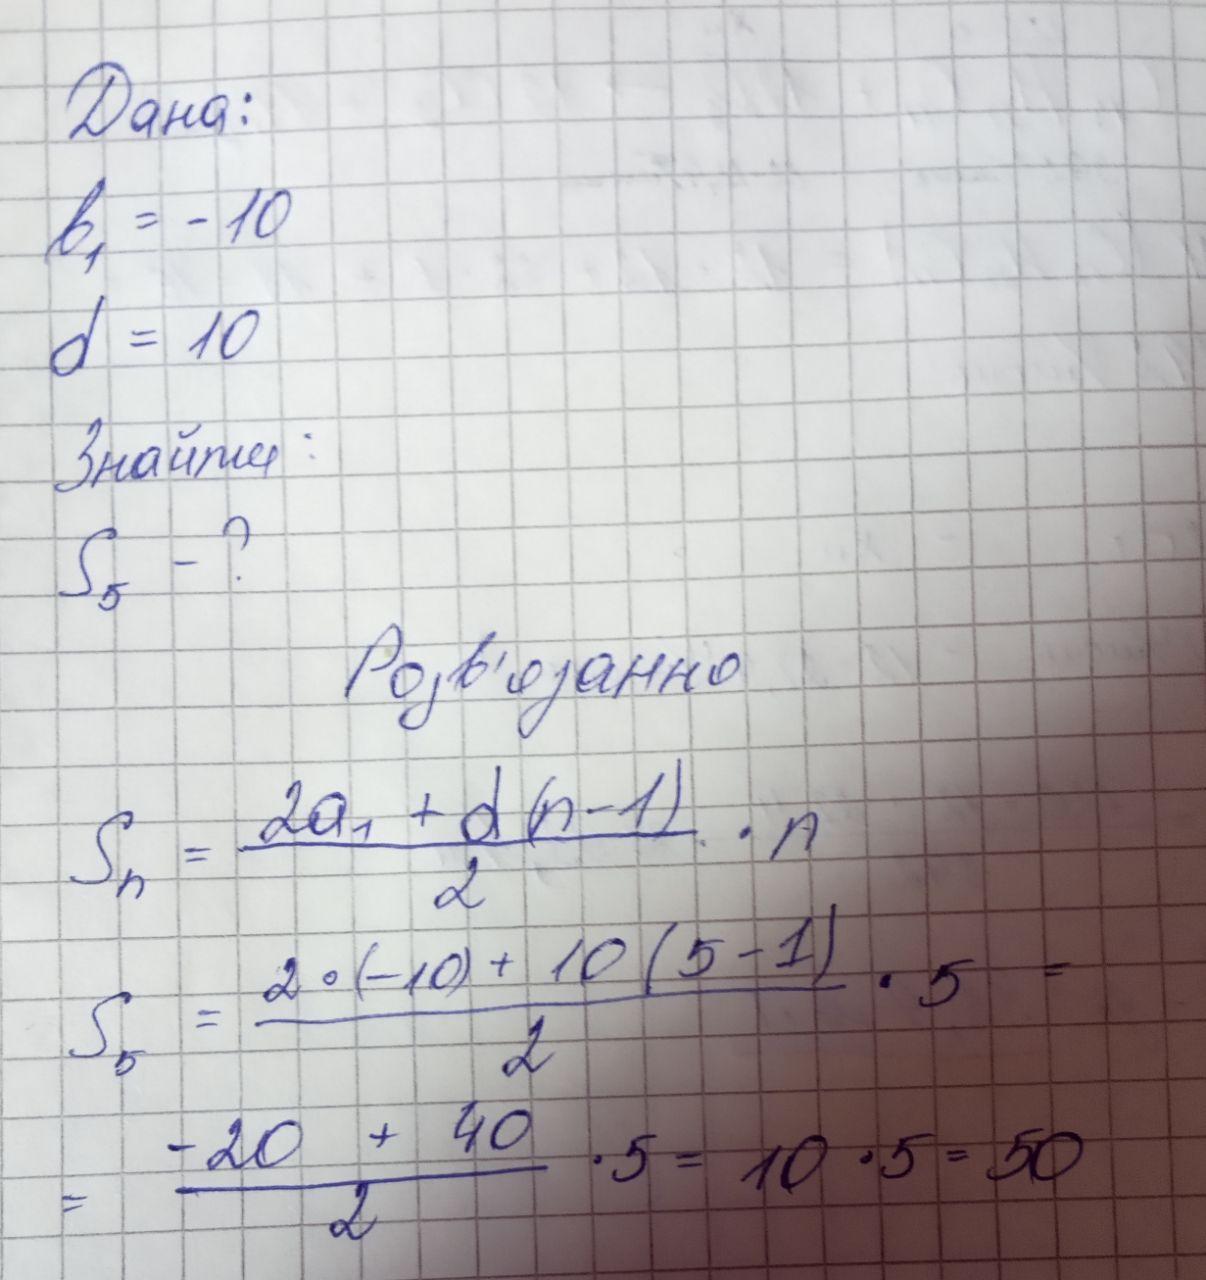 Дана:
b₁ = -10
d = 10
Знайти:
S₅ - ?
Розв'язання
Sₙ = (2a₁ + d(n-1))/2 · n
S₅ = (2·(-10) + 10(5-1))/2 · 5 =
= (-20 + 40)/2 · 5 = 10 · 5 = 50